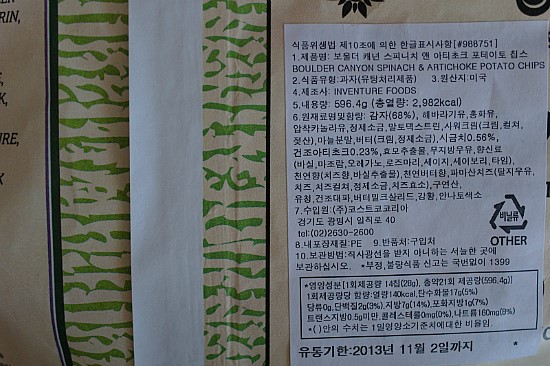 식품위생법 제10조에 의한 한글표시사항[#988751]
1.제품명: 보울더 캐년 스피니치 앤 아티초크 포테이토 칩스
BOULDER CANYON SPINACH & ARTICHOKE POTATO CHIPS
2.식품유형:과자(유탕처리제품) 3.원산지:미국
4.제조사: INVENTURE FOODS
5.내용량: 596.4g (총열량: 2,982kcal)
6.원재료명및함량: 감자(68%), 해바라기유, 홍화유,
압착카놀라유,정제소금,말토덱스트린,사워크림(크림,컬쳐,
젖산),마늘분말,버터(크림,정제소금),시금치0.56%,
건조아티초크0.23%,효모추출물,무지방우유,향신료
(바실,마조람,오레가노,로즈마리,세이지,세이보리,타임),
천연향(치즈향,바실추출물),천연버터향,파마산치즈(탈지우유,
치즈,치즈컬쳐,정제소금,치즈효소),구연산,
유청,건조대파,버터밀크살리드,강황,안나토색소
7.수입원:(주)코스트코코리아
경기도 광명시 일직로 40
tel:(02)2630-2600
8.내포장재질:PE 9.반품처:구입처
10.보관방법:직사광선을 받지 아니하는 서늘한 곳에
보관하십시오. *부정,불량식품 신고는 국번없이 1399
비닐류
OTHER
*영양성분[1회제공량 14칩(28g), 총약21회 제공량(596.4g)]
1회제공량당 함량:열량140kcal,탄수화물17g(5%)
당류0g,단백질2g(3%),지방7g(14%),포화지방1g(7%)
트랜스지방0.5g미만,콜레스테롤0mg(0%),나트륨160mg(8%)
*( )안의 수치는 1일영양소기준치에대한 비율임.
유통기한:2013년 11월 2일까지 *